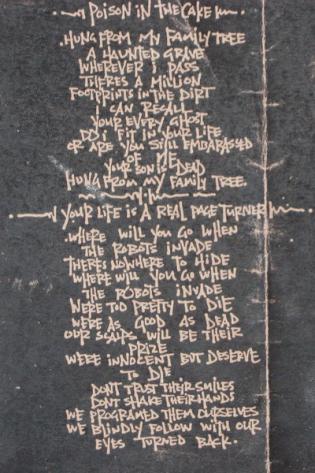 POISON IN THE CAKE
.HUNG FROM MY FAMILY TREE
A HAUNTED GRAVE
WHEREVER I PASS
THERES A MILLION
FOOTPRINTS IN THE DIRT
I CAN RECALL
YOUR EVERY GHOST
DO I FIT IN YOUR LIFE
OR ARE YOU STILL EMBARASSED
OF ME
YOUR SON IS DEAD
HUNG FROM MY FAMILY TREE.
YOUR LIFE IS A REAL PAGE TURNER
.WHERE WILL YOU GO WHEN
THE ROBOTS INVADE
THERES NOWHERE TO HIDE
WHERE WILL YOU GO WHEN
THE ROBOTS INVADE
WERE TOO PRETTY TO DIE
WERE AS GOOD AS DEAD
OUR SCALPS WILL BE THEIR
PRIZE
WERE INNOCENT BUT DESERVE
TO DIE
DONT TRUST THEIR SMILES
DONT SHAKE THEIR HANDS
WE PROGRAMED THEM OURSELVES
WE BLINDLY FOLLOW WITH OUR
EYES TURNED BACK.